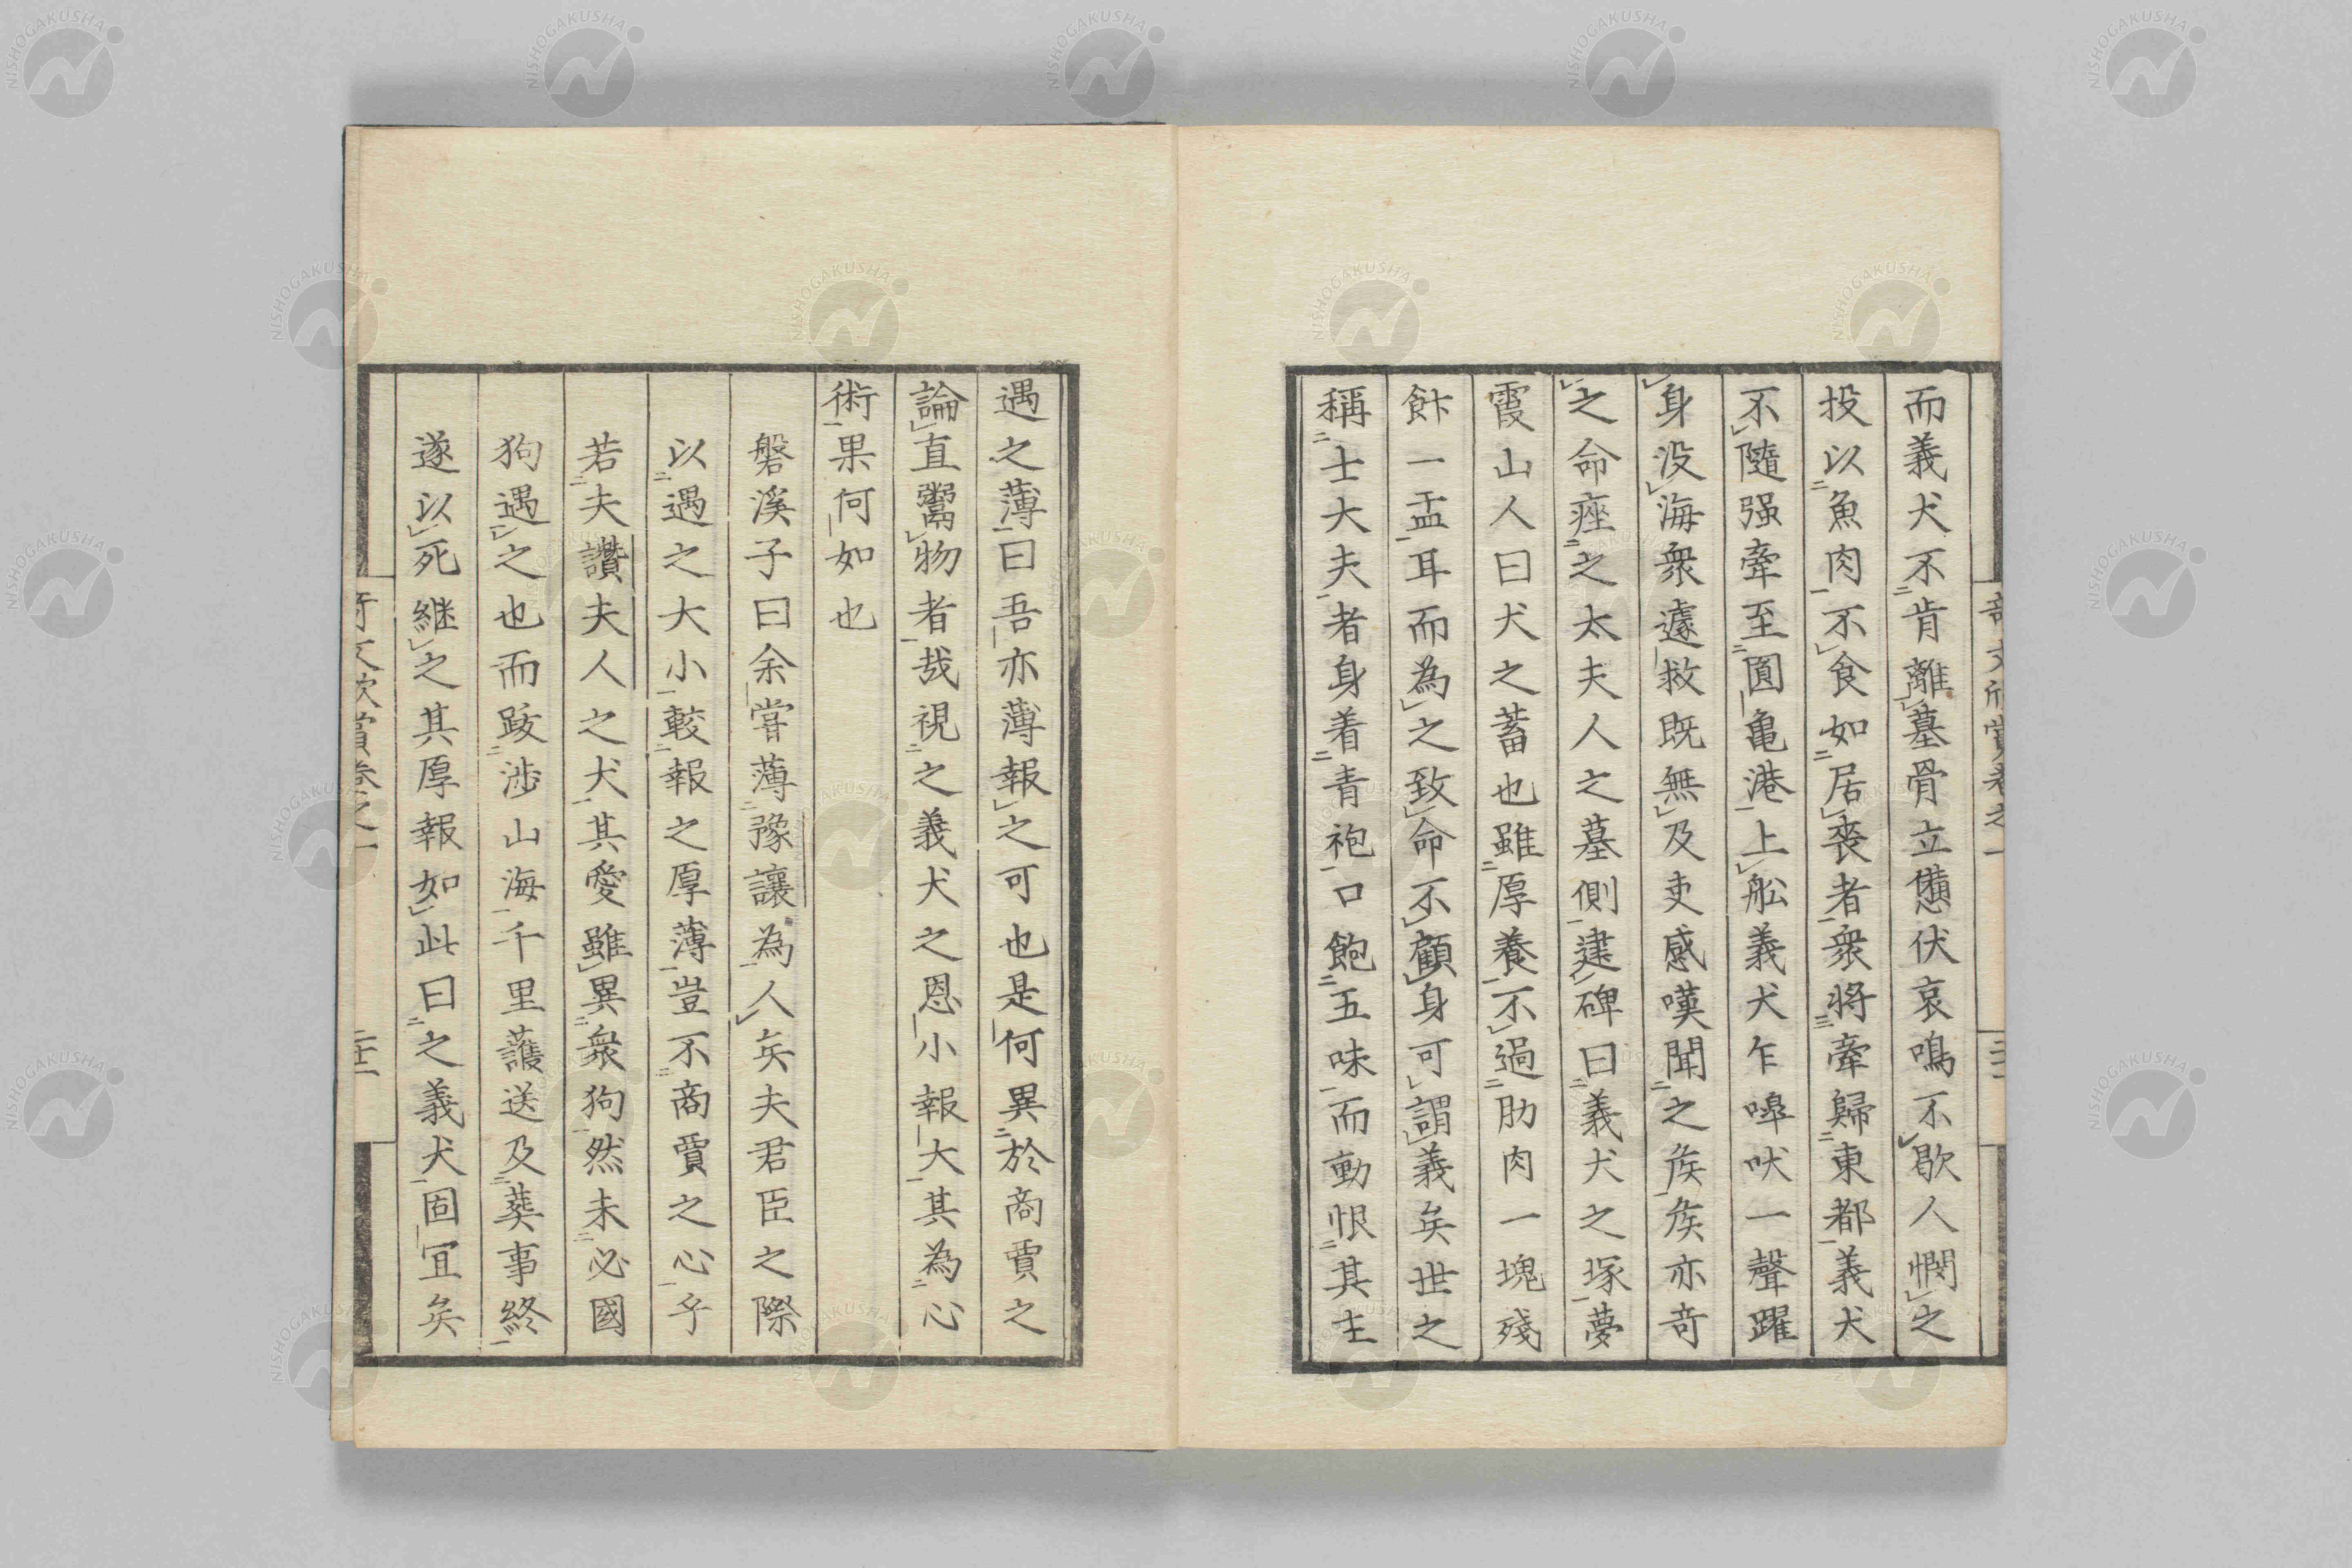 而義犬不肯離墓骨立憊伏哀鳴不歇人憫之
投以魚肉不食如居喪者衆將牽歸東都義犬
不隨强牽至圓亀港上舩義犬乍嘷吠一聲躍
身没海衆遽救既無及吏感嘆聞之矦矦亦奇
之命痙之太夫人之墓側建碑曰義犬之塚夢
霞山人曰犬之蓄也雖厚養不過肋肉一塊殘
餅一盂耳而為之致命不顧身可謂義矣世之
稱士大夫者身着青袍口飽五味而動恨其主
遇之薄曰吾亦薄報之可也是何異於商賈之
論直鬻物者哉視之義犬之恩小報大其為心
術果何如也
磐溪子曰余嘗薄豫讓為人矣夫君臣之際
以遇之大小較報之厚薄豈不商賈之心乎
若夫讚夫人之犬其愛雖異衆狗然未必國
狗遇之也而跋涉山海千里護送及葬事終
遂以死継之其厚報如此曰之義犬固宜矣
NISHOGAKUSHA